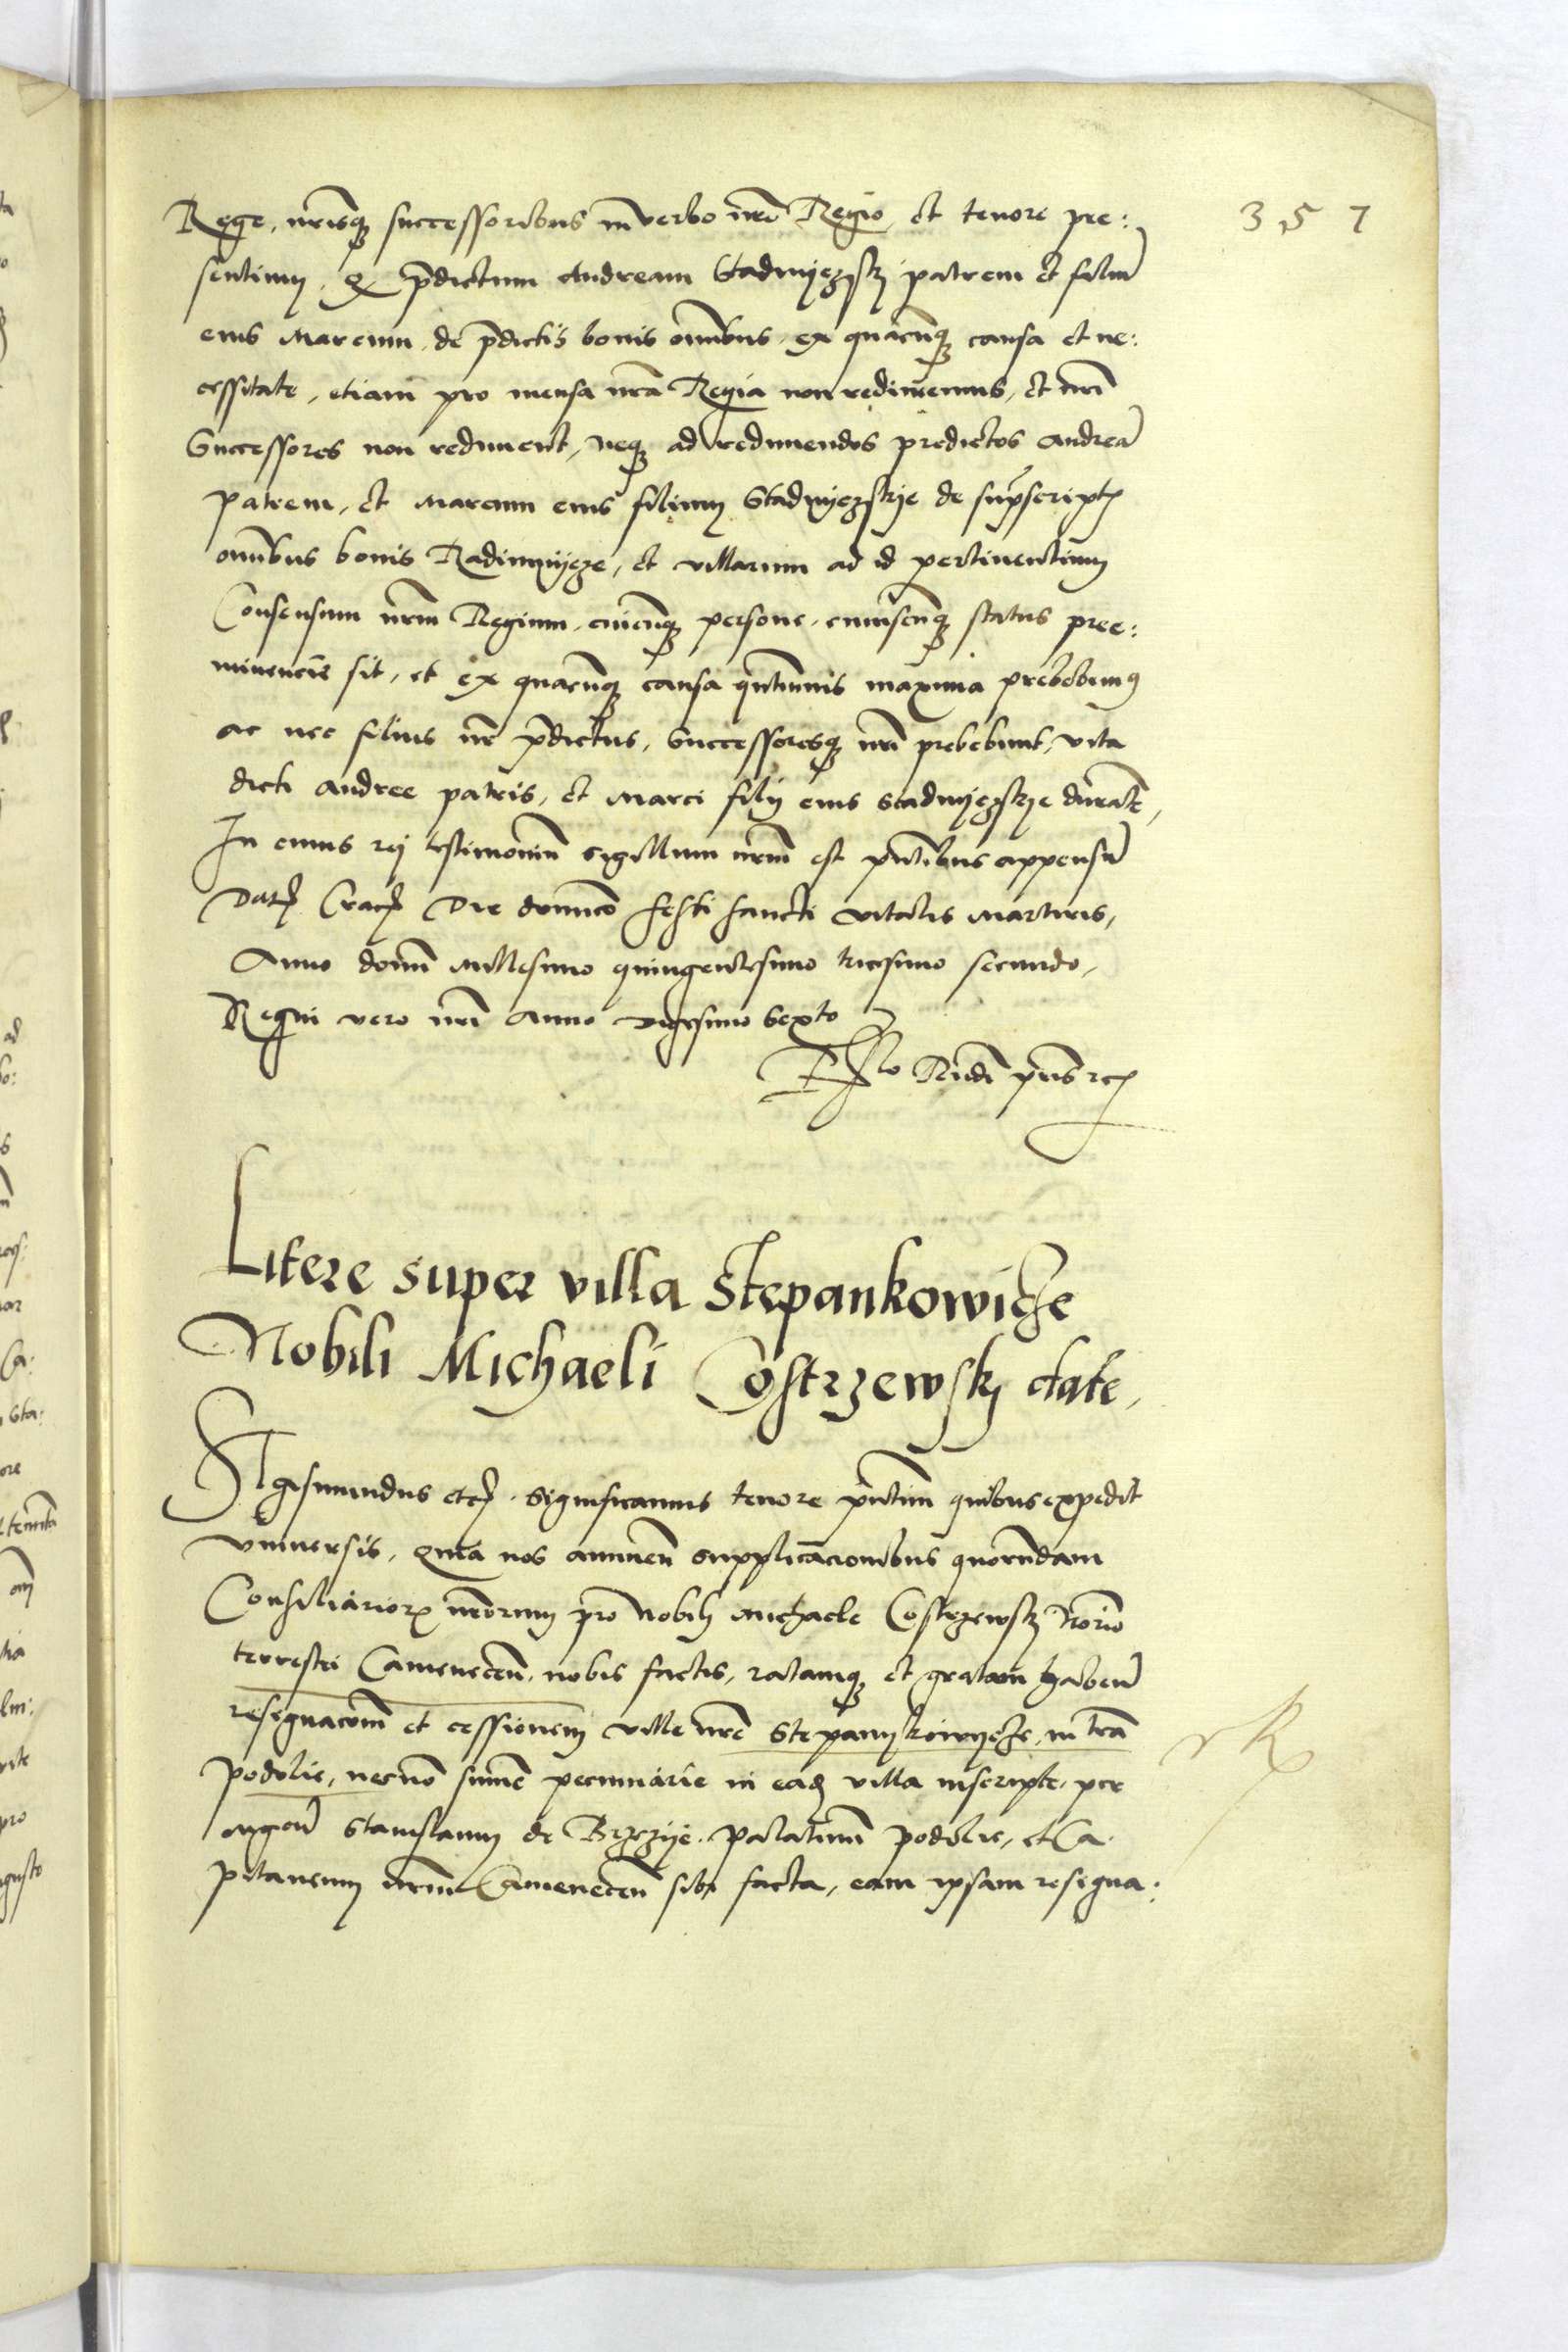 357
Rege, nrisq̃ successoribus in verbo nro Regio, et tenore pre:
sentium, q̃ p̃dictum Andream Stadnyczsky patrem et filiũ
eius Marcum, de p̃dictis bonis om̃ibus, ex quacunq̃ causa et ne:
cessitate, etiam pro mensa nr̃a Regia non redimemus, et nr̃i
Successores non rediment, neq̃ ad redimendos predictos Andreã
patrem, et Marcum eius filium Stadnyczskye de sup̃scriptꝭ
om̃ibus bonis Radimnycze, et villarum ad id pertinentium
Consensum nr̃m Regium, cuicunq̃ persone, cuiuscunq̃ status pree:
minencie sit, et ex quacunq̃ causa q̃ntumuis maxima prebebimꝰ
ac nec filius nr̃ p̃dictus, Successoresq̃ nr̃i prebebunt, vita
dicti Andree patris, et Marci filij eius Stadnyczskye durañte,
In cuius rej testimoniũ sigillum nr̃m est pñtibus appensũ
Datꝭ Cracꝭ Die dominico festi sancti Vitalis Martiris,
Anno domĩ Millesimo quingentesimo tricesimo secundo,
Regni vero nr̃i Anno vigesimo Sexto
Litere super villa Stepankowicze
Nobili Michaeli Costrzewskj date,
Sigismundus etcꝭ. Significamus tenore pñtium quibus expedit
vniuersis, Quia nos annuen̄ supplicacionibus quorundam
Consiliarioꝝ nr̃orum pro Nobili Michaele Costrzewskj Notario
terrestri Camenecen̄, nobis factis, ratamq̃ et gratam haben̄
resignacionem et cessionem ville nr̃e Stepanykowycze, in tr̃a
Podolie, necno sum̃e pecuniarie in eadꝫ villa inscripte, per
Mg̃cu̅ Stanislaum de Brzezye Palatinum Podolie, et Ca:
pitaneum nr̃m Camenecen̄ sibi facta, eam ipsam resigna: